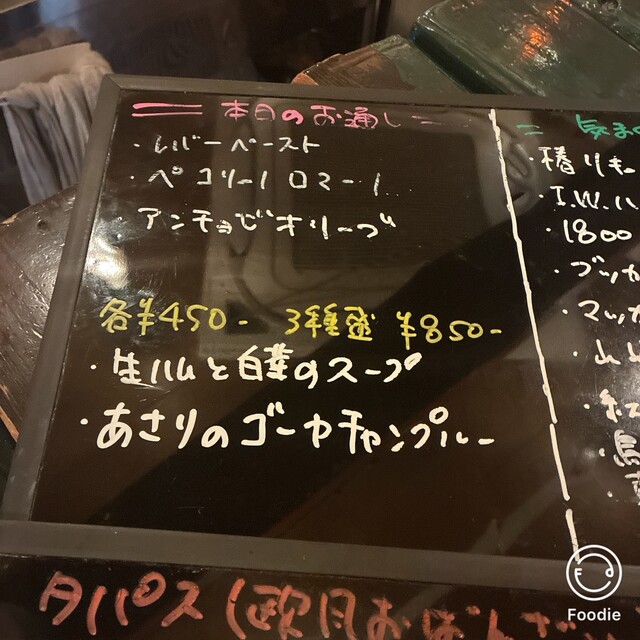 本日のお通し
・レバーペースト
・ペコリーノロマーノ
・アンチョビオリーブ
各¥450- 3種盛 ¥850-
・生ハムと白菜のスープ
・あさりのゴーヤチャンプルー
・I.W.ハ
・1800
・ブッカ
・マッカ
タパス(欧風おばんざ
Foodie